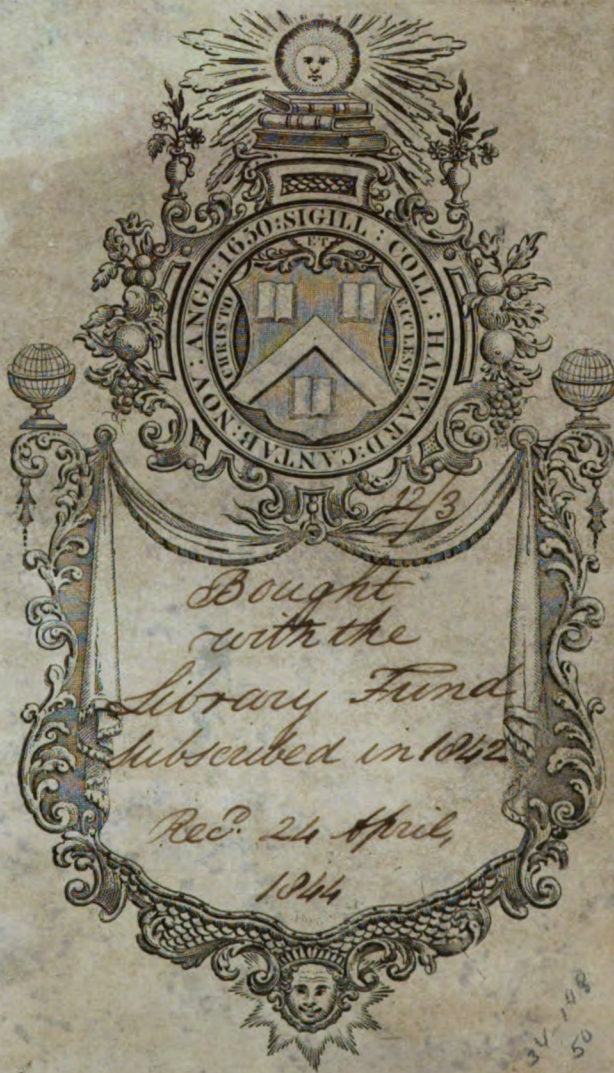 SIGILL : COLL : HARVARD : CANTAB : NOV. ANGL : 1650 :
CHRISTO ET ECCLESIÆ
12/3
Bought
with the
Library Fund
subscribed in 1842
Rec.d 24 April,
1844
50